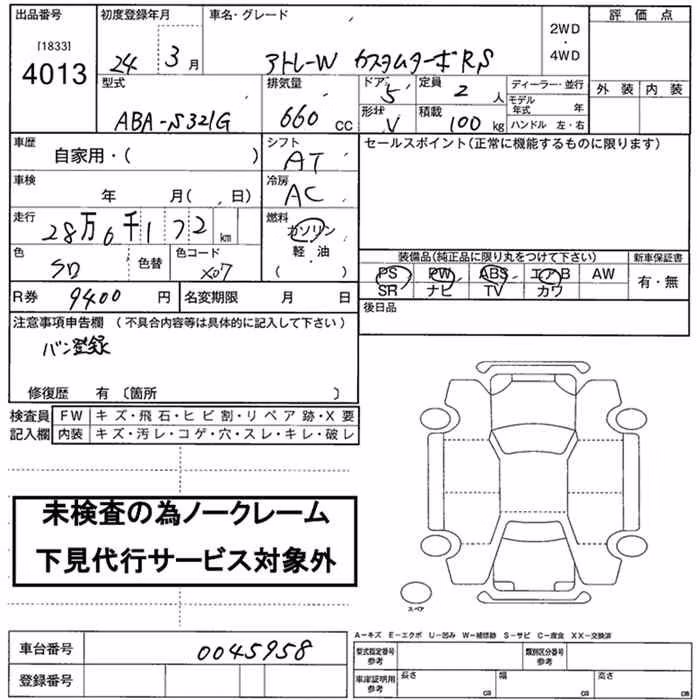 出品番号
[1833]
4013
初度登録年月
24年 3月
車名・グレード
アトレーW カスタムターボRS
2WD
・
4WD
評価点
外装 内装
型式
ABA-S321G
排気量
660 CC
ドア
5
形状
V
定員
2 人
積載
100 kg
ディーラー・並行
モデル年式 年
ハンドル 左・右
車歴
自家用・( )
シフト
AT
セールスポイント(正常に機能するものに限ります)
車検
年 月( 、 日)
冷房
AC
走行
28万6千172 km
燃料
ガソリン
軽・油
( )
色
色替
色コード
X07
装備品(純正品に限り丸をつけて下さい)
新車保証書
PS PW ABS エアB AW
SR ナビ TV カワ
有・無
R券
9400 円
名変期限 月 日
後日品
注意事項申告欄 (不具合内容等は具体的に記入して下さい)
バン登録
修復歴 有 〔箇所 〕
検査員記入欄
FW キズ・飛石・ヒビ割・リペア跡・X要
内装 キズ・汚レ・コゲ・穴・スレ・キレ・破レ
未検査の為ノークレーム
下見代行サービス対象外
スペア
A-キズ E-エクボ U-凹み W-補修跡 S-サビ C-腐食 XX-交換済
車台番号
0045958
登録番号
型式指定番号
参考
類別区分番号
参考
車庫証明用
参考
長さ cm
幅 cm
高さ cm